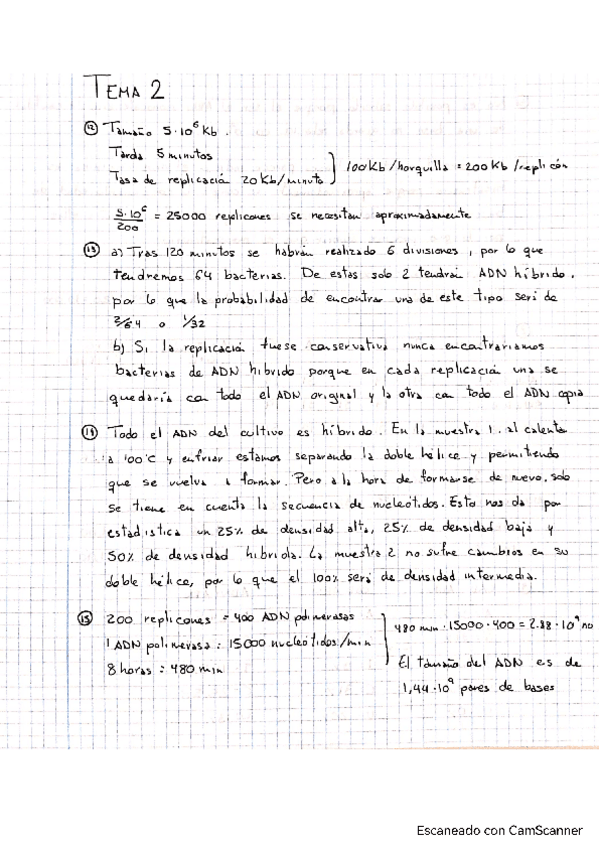 TEMA 2
12 Tamaño 5·10⁶ Kb.
Tarda 5 minutos
Tasa de replicación 20 Kb/minuto
100Kb/horquilla = 200 Kb/replicón
5·10⁶/200 = 25000 replicones se necesitan aproximadamente
13 a) Tras 120 minutos se habrán realizado 6 divisiones, por lo que
tendremos 64 bacterias. De estas solo 2 tendrán ADN híbrido,
por lo que la probabilidad de encontrar una de este tipo será de
2/64 o 1/32
b) Si la replicación fuese conservativa nunca encontraríamos
bacterias de ADN híbrido porque en cada replicación una se
quedaría con todo el ADN original y la otra con todo el ADN copia
14 Todo el ADN del cultivo es híbrido. En la muestra 1, al calentar
a 100°C y enfriar estamos separando la doble hélice y permitiendo
que se vuelva a formar. Pero a la hora de formarse de nuevo, solo
se tiene en cuenta la secuencia de nucleótidos. Esto nos da por
estadística un 25% de densidad alta, 25% de densidad baja y
50% de densidad híbrida. La muestra 2 no sufre cambios en su
doble hélice, por lo que el 100% será de densidad intermedia.
15 200 replicones = 400 ADN polimerasas
1 ADN polimerasa : 15000 nucleótidos/min
8 horas : 480 min
480 min · 15000 · 400 = 2.88 · 10⁹ no
El tamaño del ADN es de
1,44·10⁹ pares de bases
Escaneado con CamScanner